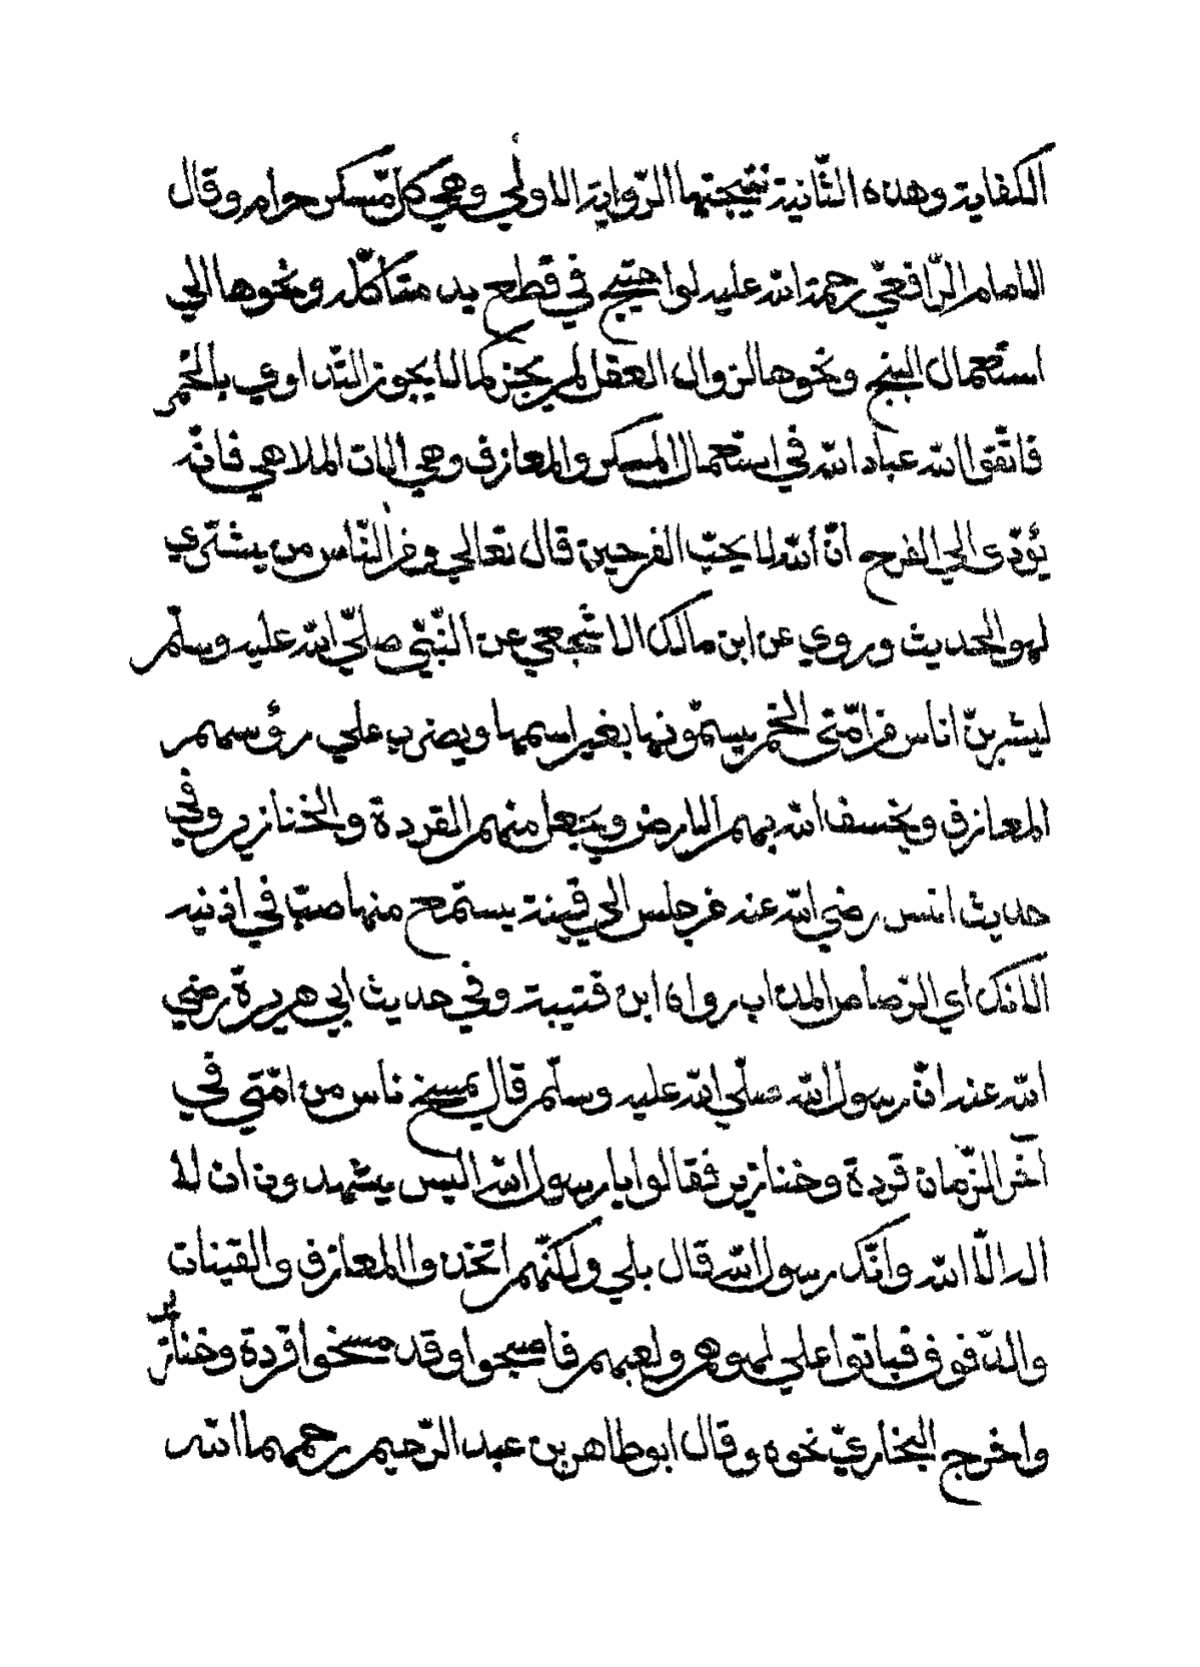 الكفاية وهذه الثّانية نتيجتها الرّواية الاولي وهي كلّ مّسكر حرام وقال
الامام الرّافعّي رحمة الله عليه لو احتيج في قطع يد متاكّله ونحوها الي
استعمال البنج ونحوها لزوال العقل لم يجز كما لا يجوز التّداوي بالخمر
فاتّقوا الله عباد الله في استعمال المسكر والمعازف وهي الات الملاهي فانّه
يؤدّي الي الفرح انّ الله لا يحبّ الفرحين قال تعالي ومن النّاس من يشتري
لهو الحديث وروي عن ابن مالك الاشجعي عن النّبّي صلّي الله عليه وسلّم
ليشربنّ اناس من امّتي الخمر يسمّونها بغير اسمها ويضرب علي رؤسهم
المعازف ويخسف الله بهم الارض ويجعل منهم القردة والخنازير وفي
حديث انس رضي الله عنه من جلس الي قينة يستمع منها صبّ في اذنيه
الانك اي الرّصاص المذاب رواه ابن قتيبة وفي حديث ابي هريرة رضي
الله عنه انّ رسول الله صلّي الله عليه وسلّم قال يمسخ ناس من امّتي في
آخر الزّمان قردة وخنازير فقالوا يا رسول الله اليس يشهدون ان لا
اله الّا الله وانّك رسول الله قال بلي ولكنّهم اتخذوا المعازف والقينات
والدّفوف فباتوا علي لهوهم ولعبهم فاصبحوا وقد مسخوا قردة وخنازير
واخرج البخاريّ نحوه وقال ابو طاهر بن عبد الرّحيم رحمهما الله